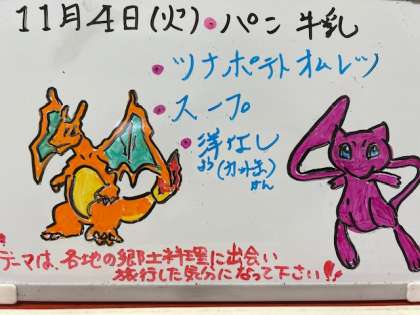 11月4日(火)・パン 牛乳
・ツナポテトオムレツ
・スープ
・洋なし
よう(カット缶)
かん
テーマは、各地の郷土料理に出会い
旅行した気分になって下さい!!